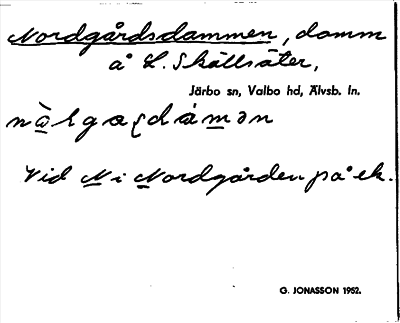 Nordgårdsdammen, damm
å L. Skällsäter,
Järbo sn, Valbo hd, Älvsb. ln.
Vid N i Nordgården på ek.
G. JONASSON 1952.